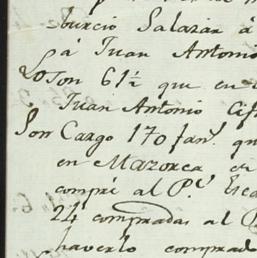 burcio Salazar á
á Juan Antonio
Lo son 61½ que en
Juan Antonio Cif
Son Cargo 170 fan.s qu
en Mazorca en
compré al P.e
24 compradas al P
haverlo comprad